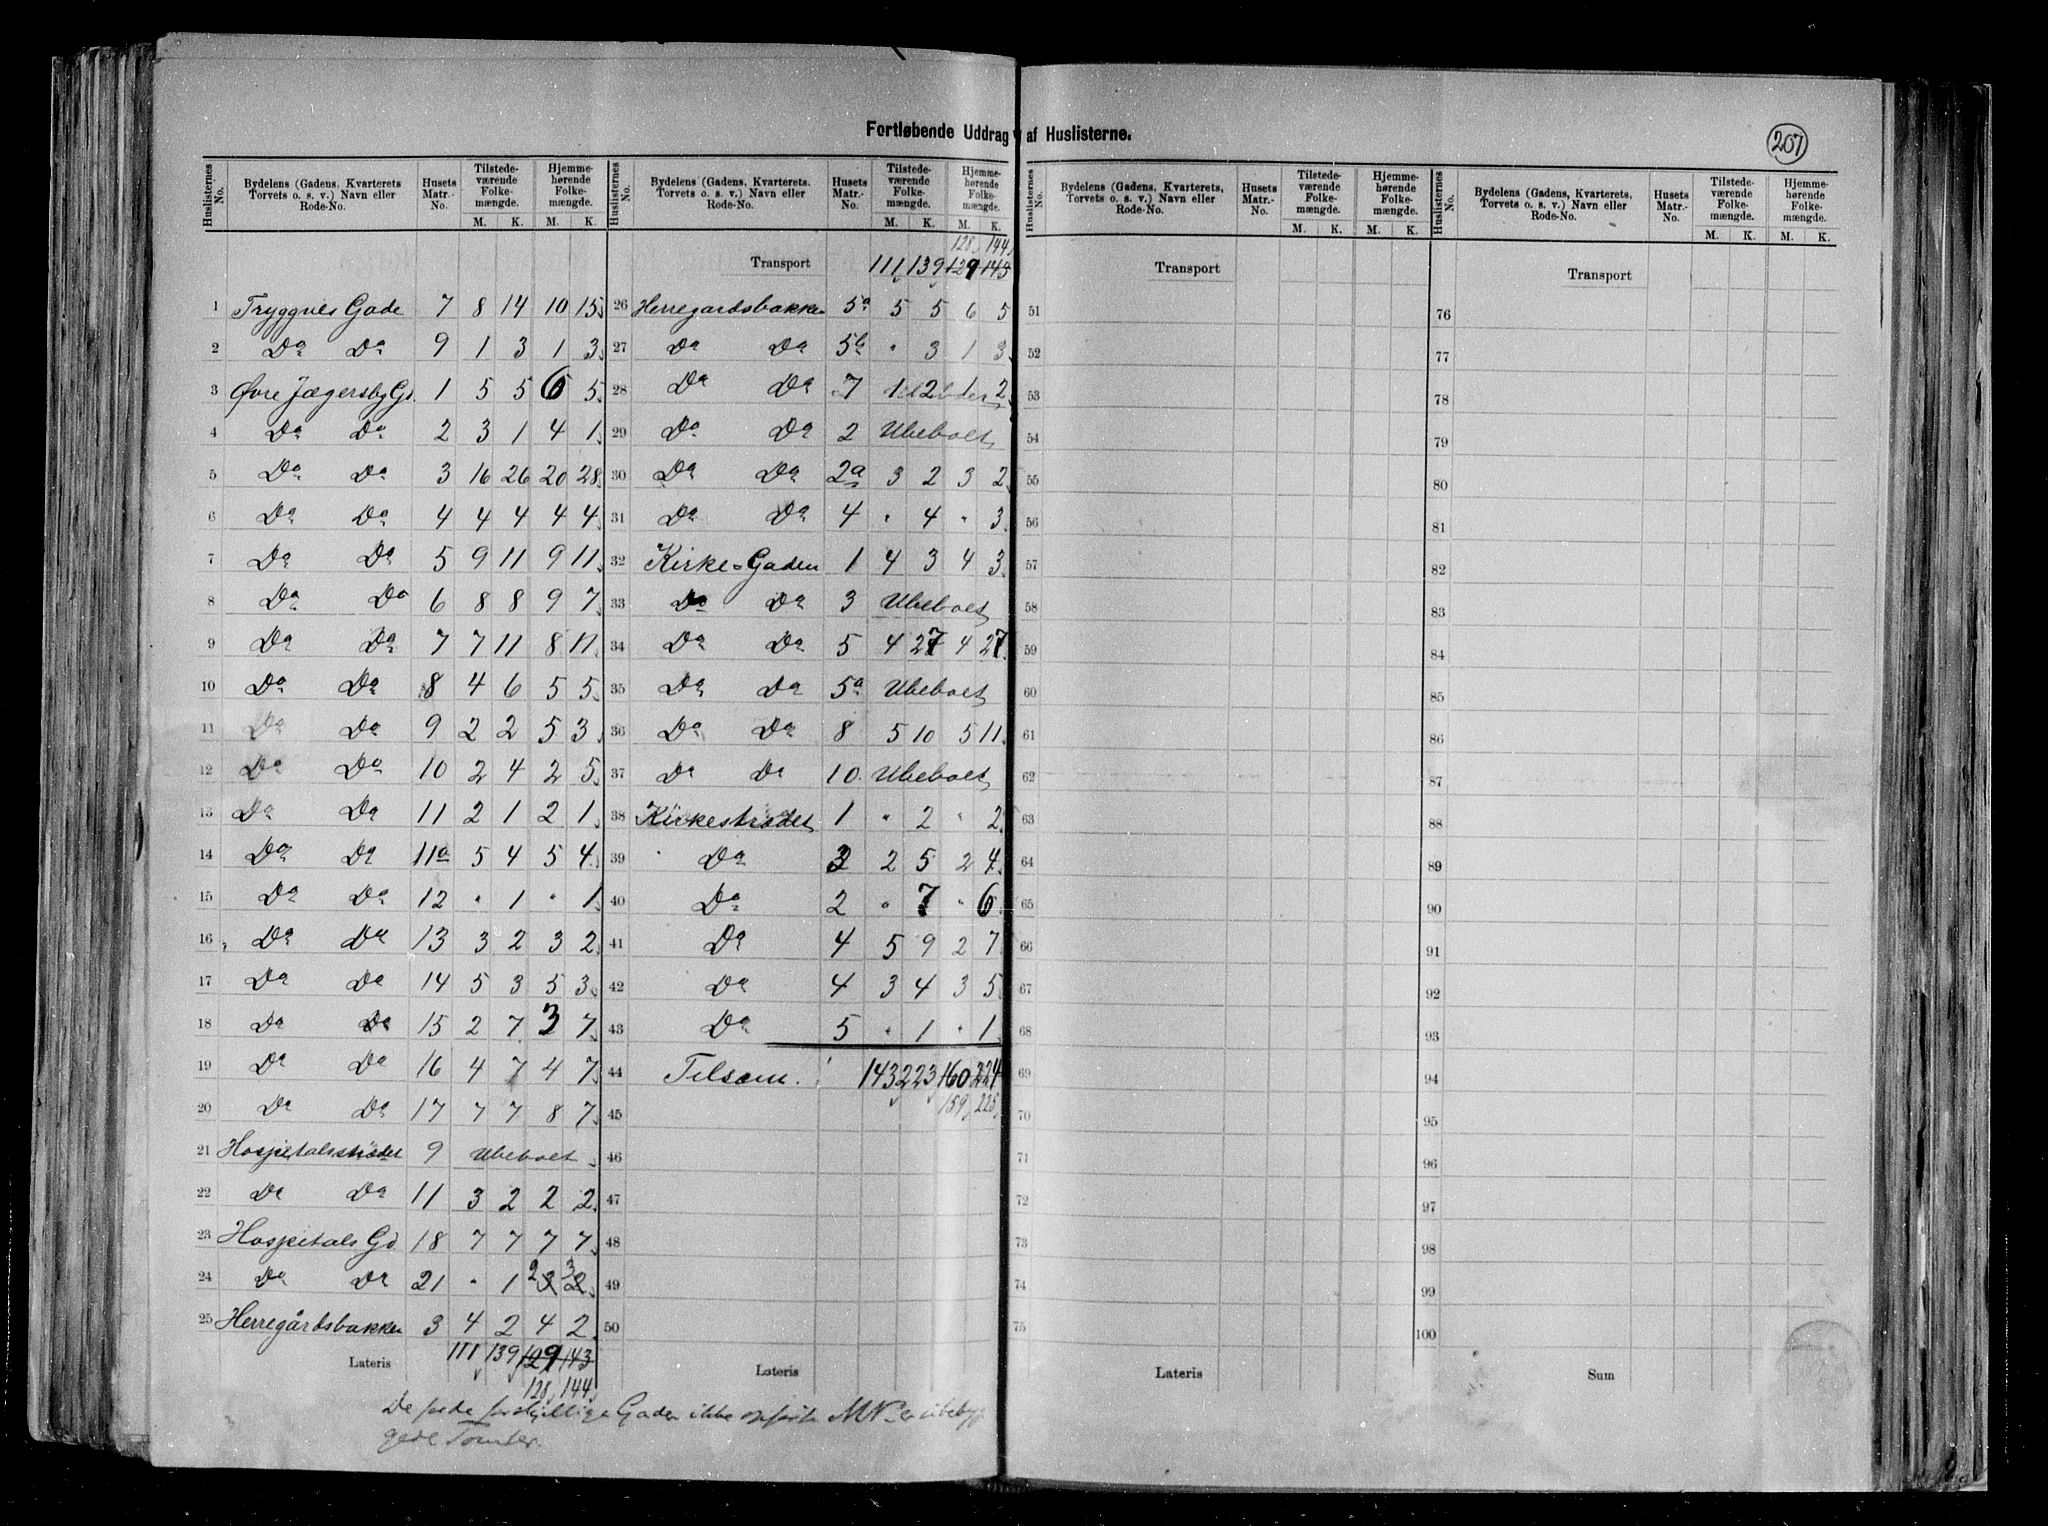 Fortløbende Uddrag af Huslisterne.
207
Huslisternes No. | Bydelens (Gadens, Kvarterets Torvets o. s. v.) Navn eller Rode-No. | Husets Matr.-No. | Tilstedeværende Folkemængde. M. K. | Hjemmehørende Folkemængde. M. K.
1 Tryggves Gade 7 8 14 10 15
2 Do Do 9 1 3 1 3
3 Øvre Jægersby Gd. 1 5 5 6 5
4 Do Do 2 3 1 4 1
5 Do Do 3 16 26 20 28
6 Do Do 4 4 4 4 4
7 Do Do 5 9 11 9 11
8 Do Do 6 8 8 9 7
9 Do Do 7 7 11 8 11
10 Do Do 8 4 6 5 5
11 Do Do 9 2 2 5 3
12 Do Do 10 2 4 2 5
13 Do Do 11 2 1 2 1
14 Do Do 11a 5 4 5 4
15 Do Do 12 " 1 " 1
16 Do Do 13 3 2 3 2
17 Do Do 14 5 3 5 3
18 Do Do 15 2 7 3 7
19 Do Do 16 4 7 4 7
20 Do Do 17 7 7 8 7
21 Hospitalsstrædet 9 Ubeboet
22 Do Do 11 3 2 2 2
23 Hospitals Gd 18 7 7 7 7
24 Do Do 21 " 1 2 3
25 Herregårdsbakken 3 4 2 4 2
Lateris 111 139 129 143
128 144
Huslisternes No. | Bydelens (Gadens, Kvarterets, Torvets o. s. v.) Navn eller Rode-No. | Husets Matr.-No. | Tilstedeværende Folkemængde. M. K. | Hjemmehørende Folkemængde. M. K.
128 144
Transport 111 139 129 143
26 Herregardsbakken 5a 5 5 6 5
27 Do Do 5b " 3 1 3
28 Do Do 7 1 2 1 2
29 Do Do 2 Ubeboet
30 Do Do 2a 3 2 3 2
31 Do Do 4 " 4 " 3
32 Kirke=Gaden 1 4 3 4 3
33 Do Do 3 Ubeboet
34 Do Do 5 4 27 4 27
35 Do Do 5a Ubeboet
36 Do Do 8 5 10 5 11
37 Do Do 10 Ubeboet
38 Kirkestrædet 1 " 2 " 2
39 Do 2 5 2 4
40 Do 2 " 7 " 6
41 Do 4 5 9 2 7
42 Do 4 3 4 3 5
43 Do 5 " 1 " 1
44 Tilsam. 143 223 160 224
45 159 225
46
47
48
49
50
Lateris
Huslisternes No. | Bydelens (Gadens, Kvarterets, Torvets o. s. v.) Navn eller Rode-No. | Husets Matr.-No. | Tilstedeværende Folkemængde. M. K. | Hjemmehørende Folkemængde. M. K.
Transport
51
52
53
54
55
56
57
58
59
60
61
62
63
64
65
66
67
68
69
70
71
72
73
74
75
Lateris
Huslisternes No. | Bydelens (Gadens, Kvarterets, Torvets o. s. v.) Navn eller Rode-No. | Husets Matr.-No. | Tilstedeværende Folkemængde. M. K. | Hjemmehørende Folkemængde. M. K.
Transport
76
77
78
79
80
81
82
83
84
85
86
87
88
89
90
91
92
93
94
95
96
97
98
99
100
Sum
De forskjellige Gader ikke opførte M No er ubebyg
gede Tomter.